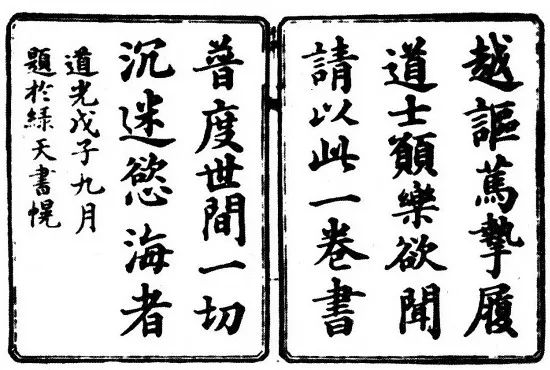 越謳篤摯履
道士願樂欲聞
請以此一卷書
普度世間一切
沉迷慾海者
道光戊子九月
題於綠天書幌